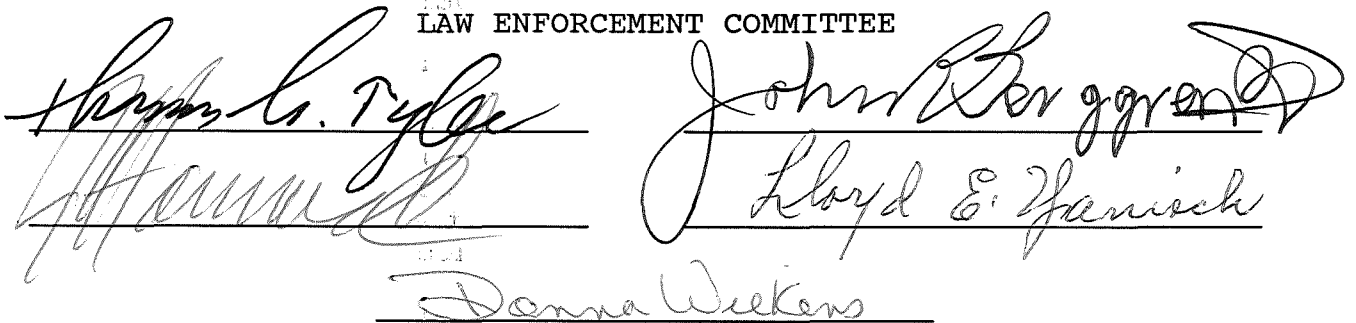 LAW ENFORCEMENT COMMITTEE
Tyler John R Berggren
Lloyd E. Yanisch
Donna Wilkens